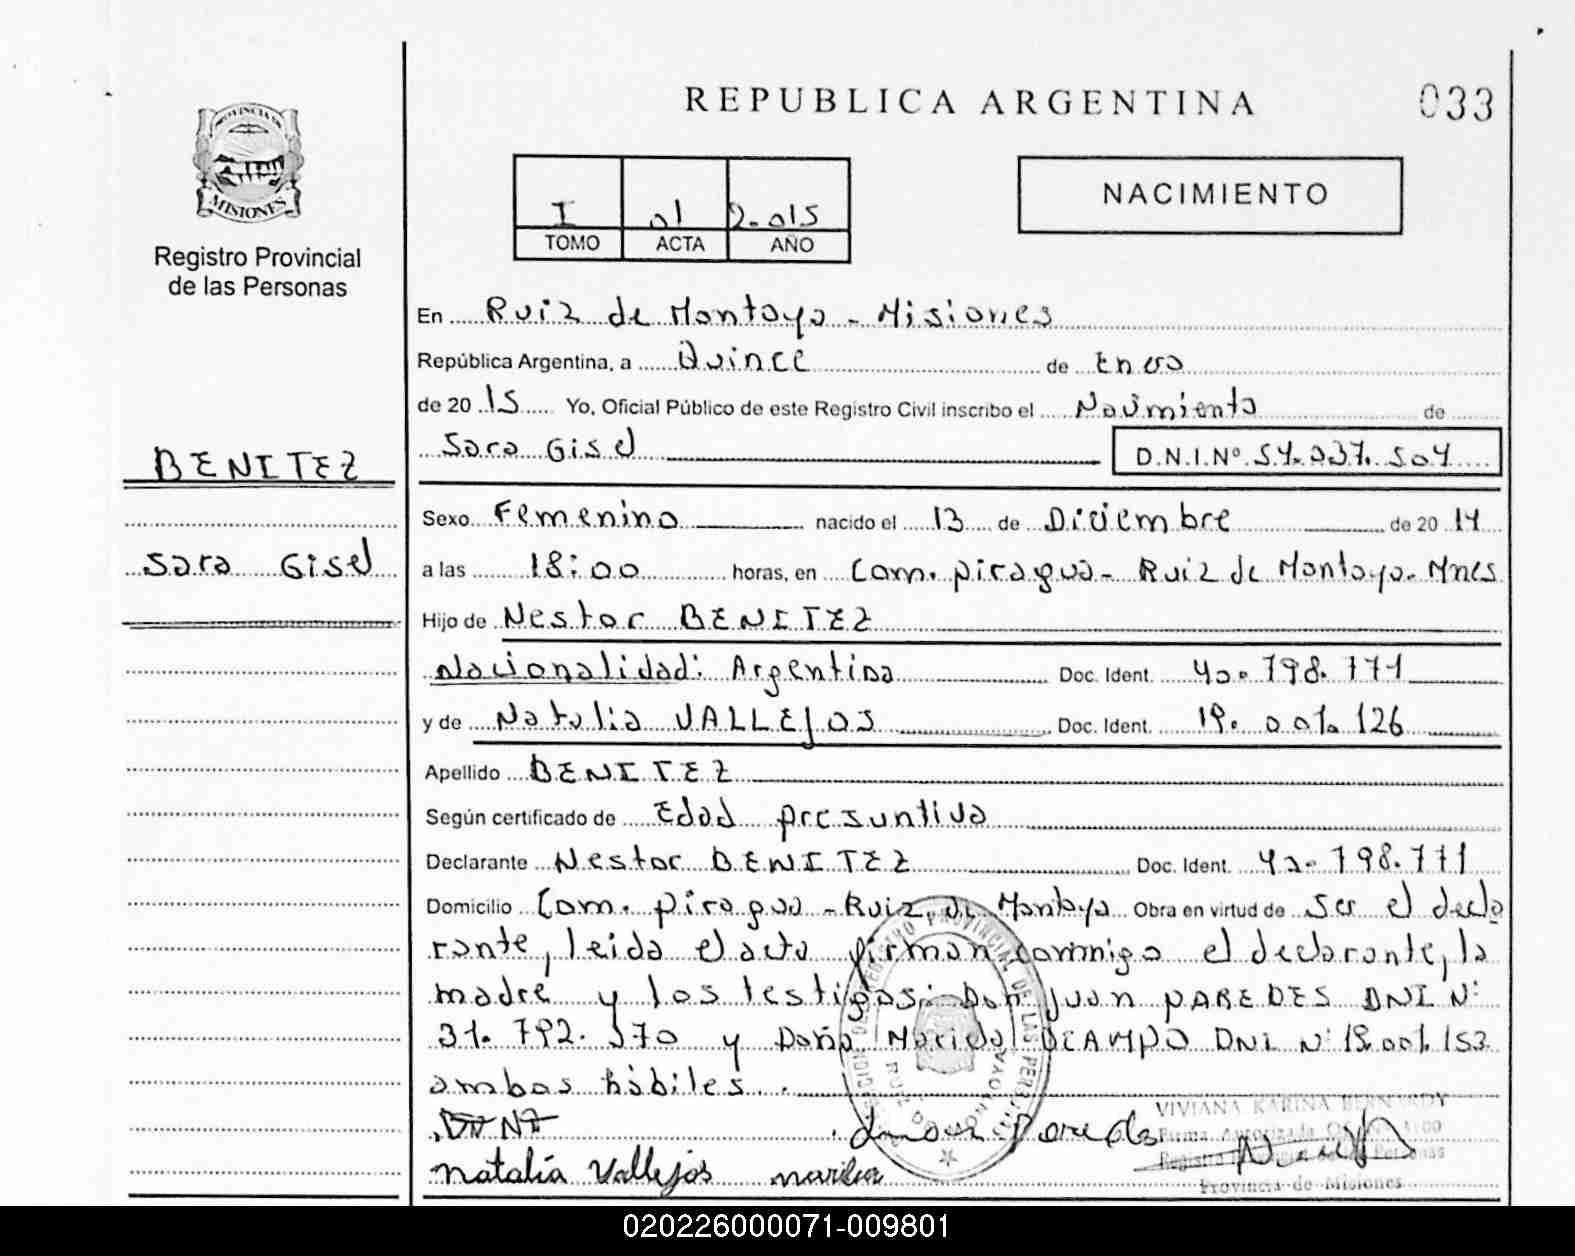 REPUBLICA ARGENTINA
033
PROVINCIA DE
MISIONES
Registro Provincial
de las Personas
I 01 2.015
TOMO ACTA AÑO
NACIMIENTO
En Ruiz de Montoya - Misiones
República Argentina, a Quince de Enero
de 2015 Yo, Oficial Público de este Registro Civil inscribo el Nacimiento de
Sara Gisel D.N.I.Nº 54.937.504
BENITEZ
Sara Gisel
Sexo Femenino nacido el 13 de Diciembre de 2014
a las 18:00 horas, en Com. piragua - Ruiz de Montoya - Mnes
Hijo de Nestor BENITEZ
Nacionalidad: Argentina Doc. Ident. 40.798.771
y de Natalia VALLEJOS Doc. Ident. 19.001.126
Apellido BENITEZ
Según certificado de Edad presuntiva
Declarante Nestor BENITEZ Doc. Ident. 40.798.771
Domicilio Com. piragua - Ruiz de Montoya Obra en virtud de Ser el decla
rante, leida el acta firman conmigo el declarante, la
madre y los testigos: Don Juan PAREDES DNI Nº
31.792.970 y Doña OCAMPO DNI Nº 19.001.153
ambos hábiles.
Paredes
VIVIANA KARINA BERNARDY
Firma Autorizada
Natalia Vallejos
Provincia de Misiones
020226000071-009801